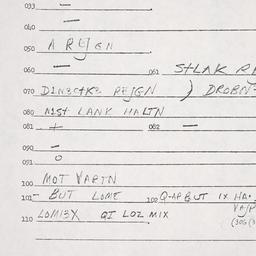 033 –
040 –
050 A REJGN
060 – 061 StLAK RE
070 REJGN ) DROBN
080 A1St LANK HALTN
081 + 082 –
090 –
091 o
100 MOT VARTN
101 – BUT LOME 100 BUT IX HA.
110 LOMI3X QI LOZ MIX